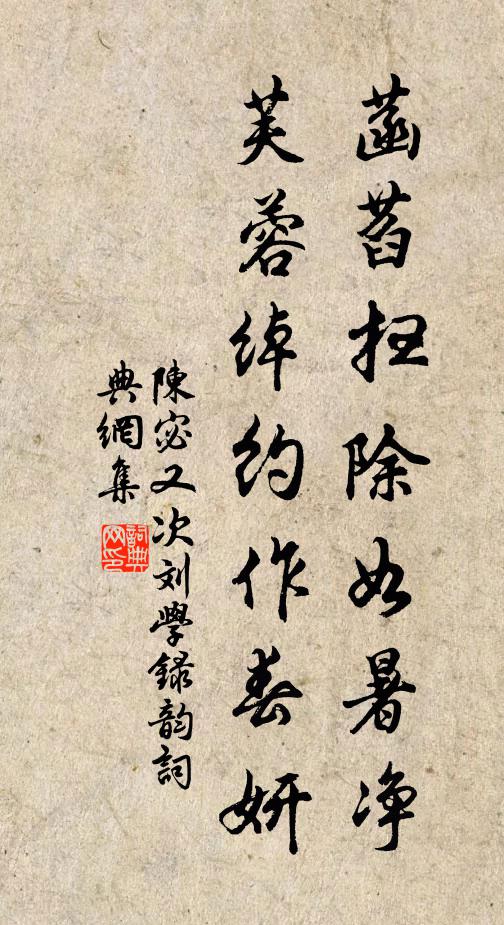 菡萏扫除如暑净
芙蓉綽約作春妍
陳宓又次刘學錄韵詞
典網集
詞典
网印